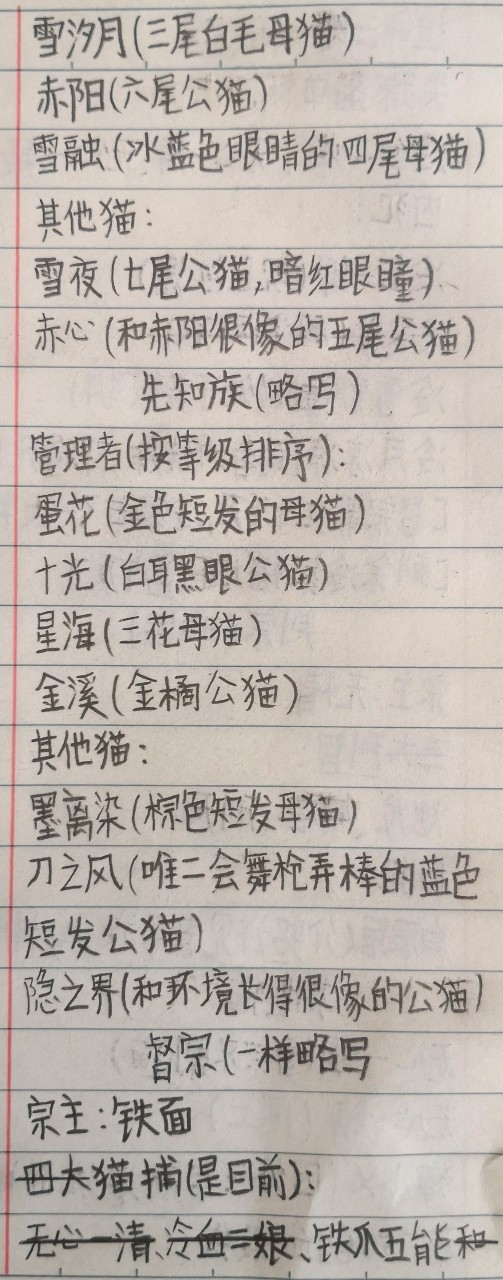 雪汐月(三尾白毛母猫)
赤阳(六尾公猫)
雪融(冰蓝色眼睛的四尾母猫)
其他猫:
雪夜(七尾公猫,暗红眼瞳)
赤心(和赤阳很像的五尾公猫)
先知族(略写)
管理者(按等级排序):
蛋花(金色短发的母猫)
十光(白耳黑眼公猫)
星海(三花母猫)
金溪(金橘公猫)
其他猫:
墨离染(棕色短发母猫)
刀之风(唯二会舞枪弄棒的蓝色
短发公猫)
隐之界(和环境长得很像的公猫)
督宗(一样略写
宗主:铁面
四大猫捕(是目前):
无心一清、冷血二娘、铁爪五能和